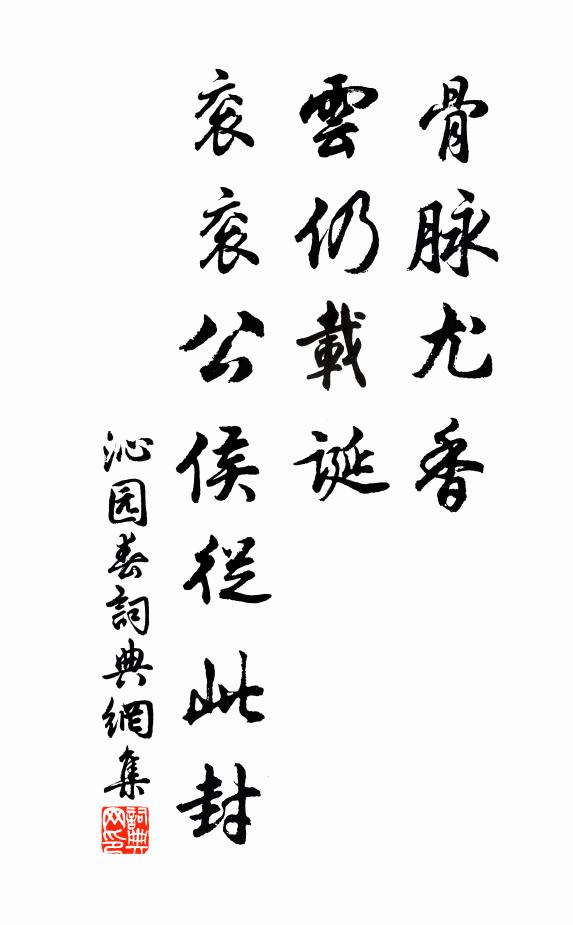 骨脉尤香
雲仍載誕
衮衮公侯從此封
沁园春詞典網集
詞典
网印